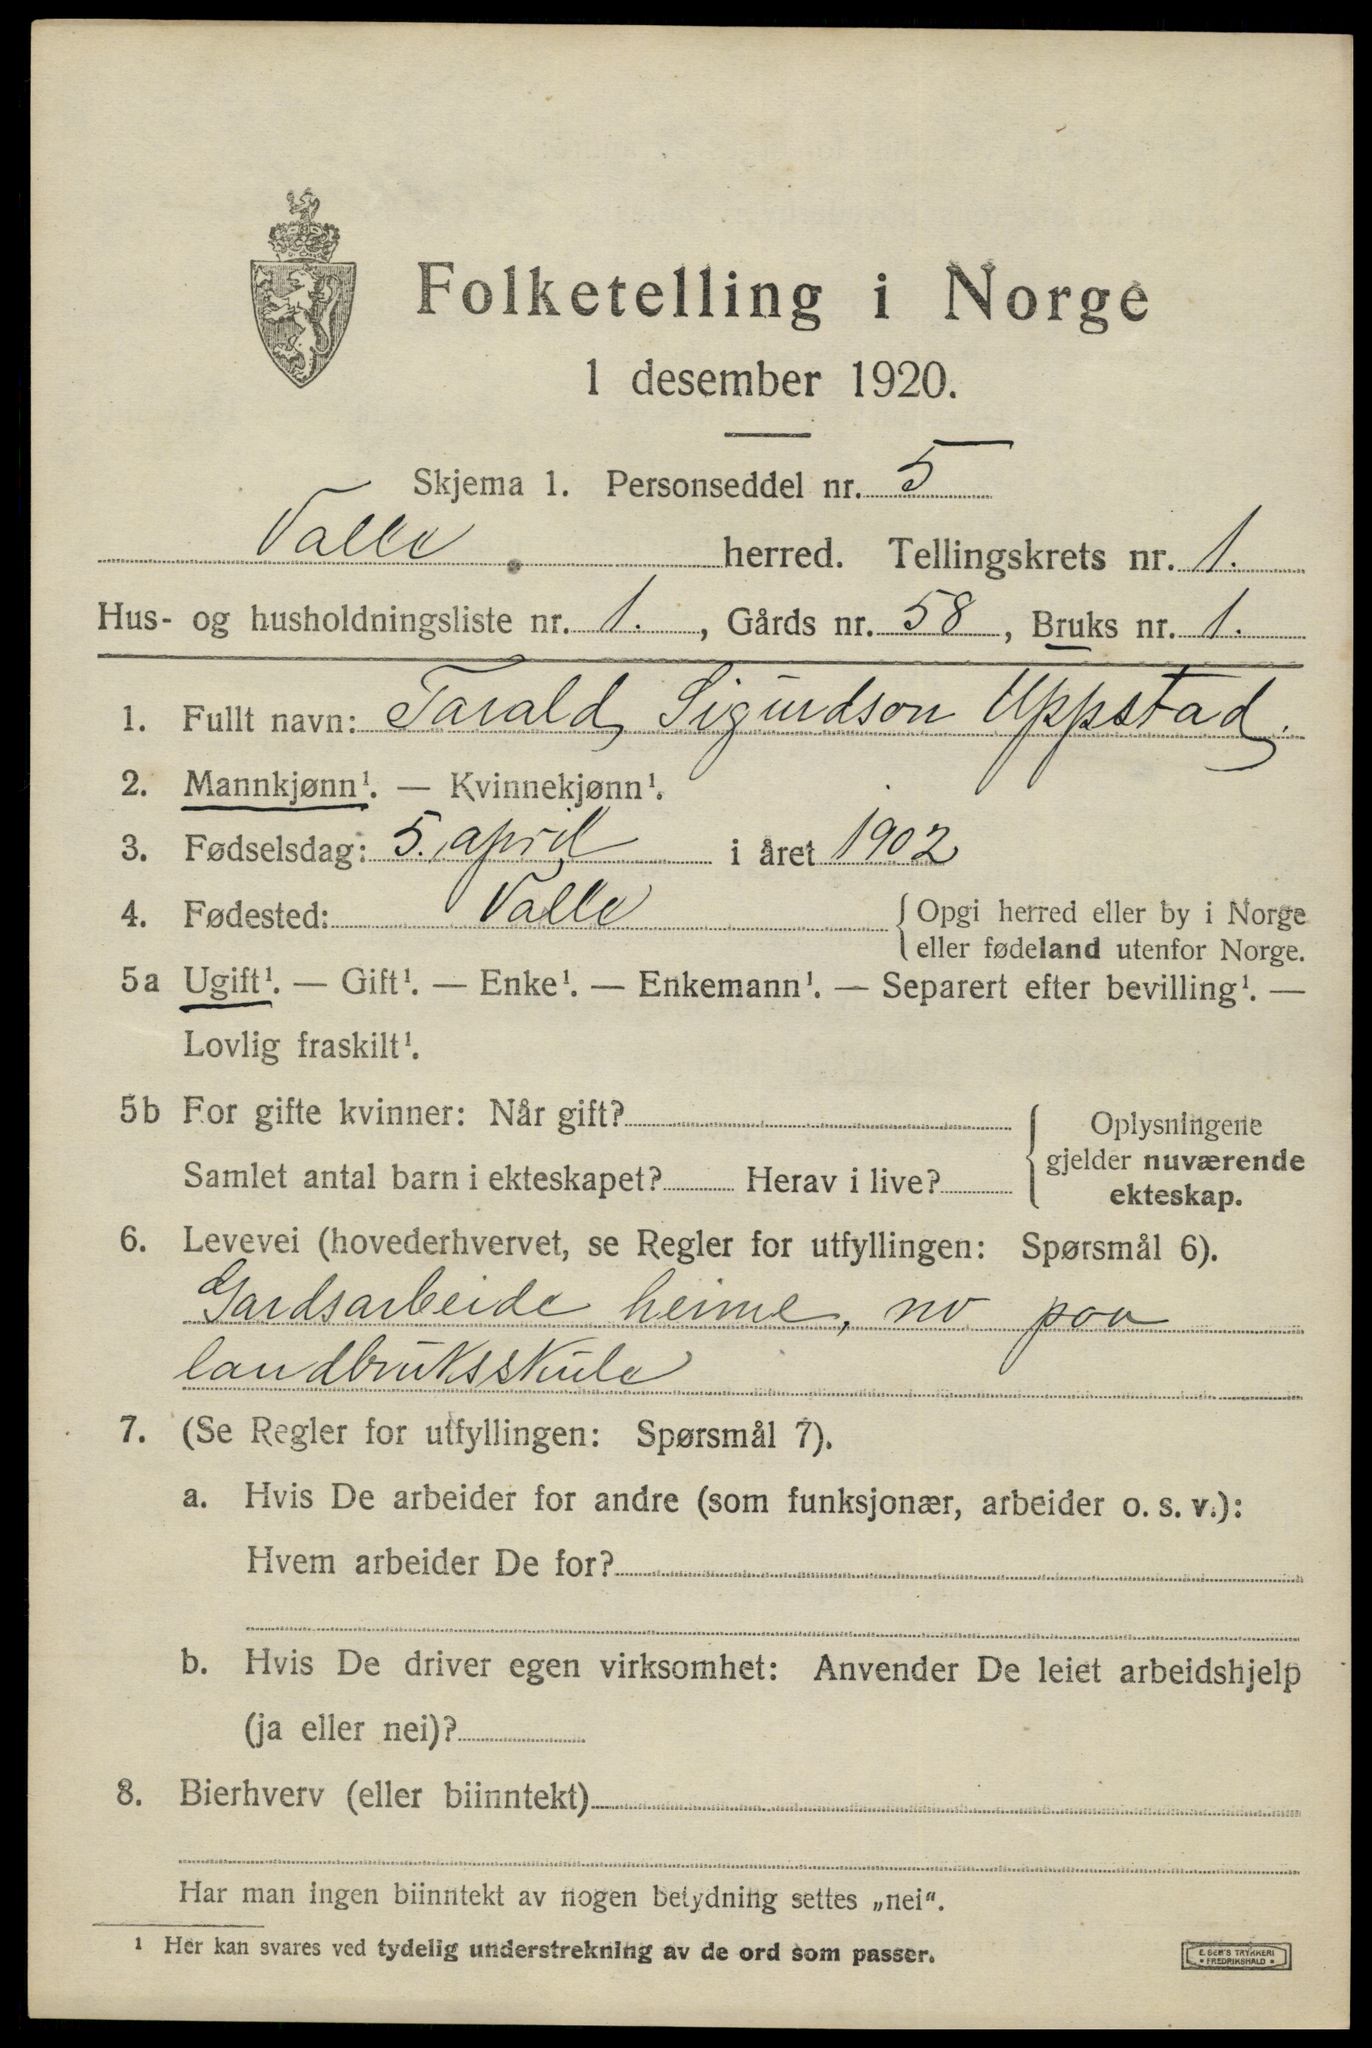 Folketelling i Norge
1 desember 1920.
Skjema 1. Personseddel nr. 5
Valle herred. Tellingskrets nr. 1.
Hus- og husholdningsliste nr. 1., Gårds nr. 58, Bruks nr. 1.
1. Fullt navn: Tarald Sigurdson Uppstad.
2. Mannkjønn¹. — Kvinnekjønn¹.
3. Fødselsdag: 5. april i året 1902
4. Fødested: Valle { Opgi herred eller by i Norge
eller fødeland utenfor Norge.
5a Ugift¹. — Gift¹. — Enke¹. — Enkemann¹. — Separert efter bevilling¹. —
Lovlig fraskilt¹.
5b For gifte kvinner: Når gift?
Samlet antal barn i ekteskapet? Herav i live?
Oplysningene
gjelder nuværende
ekteskap.
6. Levevei (hovederhvervet, se Regler for utfyllingen: Spørsmål 6).
Gardsarbeide heime, no paa
landbruksskule
7. (Se Regler for utfyllingen: Spørsmål 7).
a. Hvis De arbeider for andre (som funksjonær, arbeider o. s. v.):
Hvem arbeider De for?
b. Hvis De driver egen virksomhet: Anvender De leiet arbeidshjelp
(ja eller nei)?
8. Bierhverv (eller biinntekt)
Har man ingen biinntekt av nogen betydning settes „nei“.
¹ Her kan svares ved tydelig understrekning av de ord som passer.
E. SEM'S TRYKKERI
• FREDRIKSHALD •